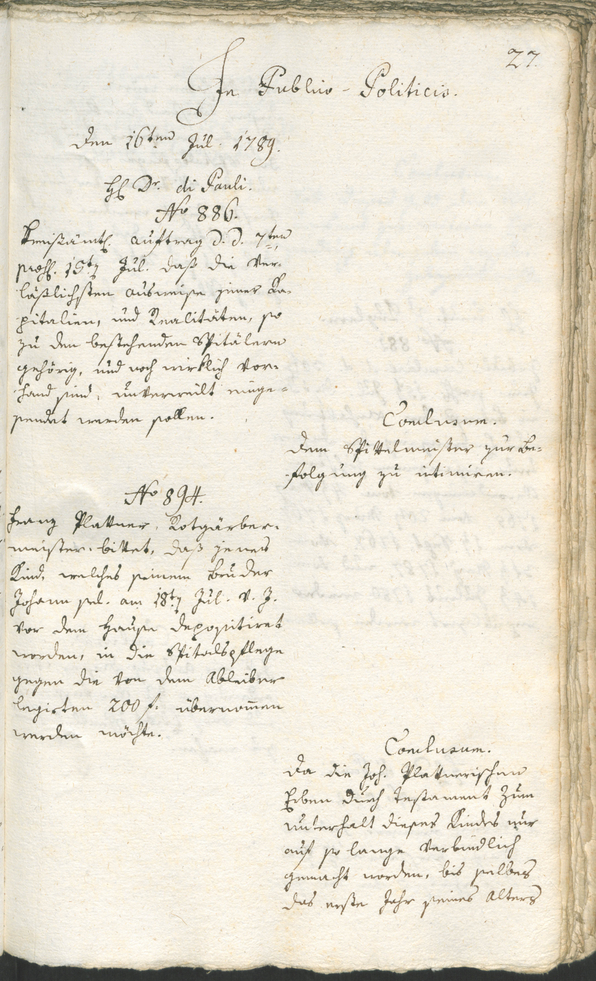 27.
In Publico-Politicis.
Den 16ten Jul. 1789.
H. Dr. di Pauli.
No 886.
Kreisämtl. Auftrag d. d. 7ten
pros. 15t. Jul. daß die Ver-
läßlichsten ausweise jener Ka-
pitalien, und Realitäten, so
zu den bestehenden Spitälern
gehörig, und noch wirklich vor-
hand sind, unverweilt einge-
sendet werden sollen.
Conclusum.
Dem Spittelmeister zur Be-
folgung zu intimiren.
No 894.
Franz Plattner, Rotgärber-
meister bittet, daß jenes
Kind, welches seinem Bruder
Johann sel. am 18t. Jul. v. J.
vor dem Hause depositiret
worden, in die Spitalspflege
gegen die von dem Ableiber
legirten 200 f. übernommen
werden möchte.
Conclusum.
Da die Joh. Plattnerischen
Erben durch Testament zum
unterhalt dieses Kindes nur
auf so lange Verbindlich
gemacht worden, bis selbes
das erste Jahr seines Alters